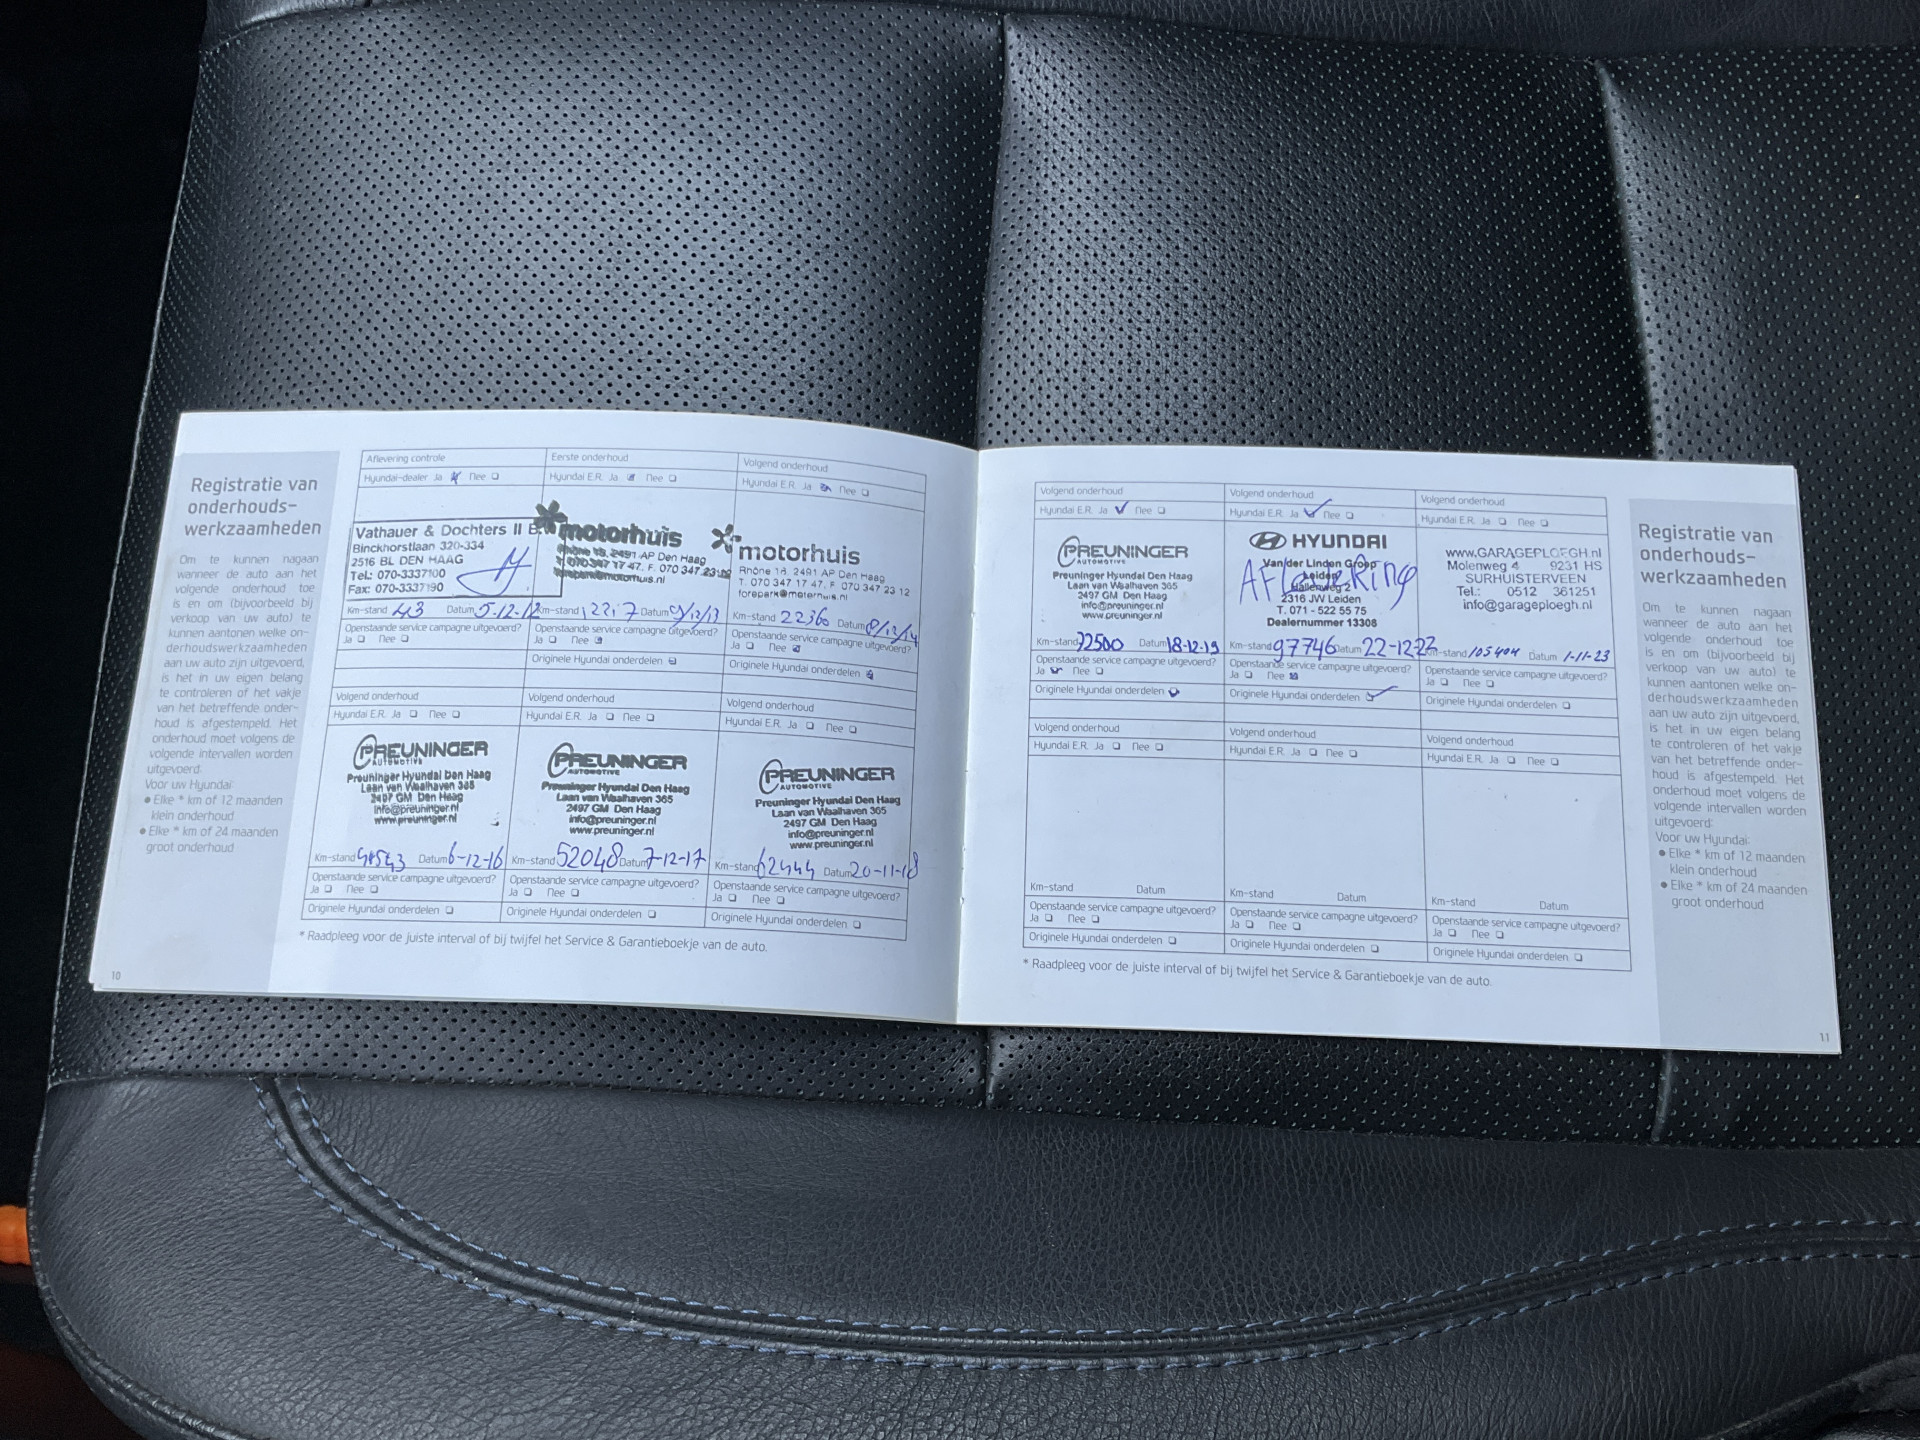 Registratie van
onderhouds-
werkzaamheden
Om te kunnen nagaan
wanneer de auto aan het
volgende onderhoud toe
is en om (bijvoorbeeld bij
verkoop van uw auto) te
kunnen aantonen welke on-
derhoudswerkzaamheden
aan uw auto zijn uitgevoerd,
is het in uw eigen belang
te controleren of het vakje
van het betreffende onder-
houd is afgestempeld. Het
onderhoud moet volgens de
volgende intervallen worden
uitgevoerd:
Voor uw Hyundai:
Elke * km of 12 maanden
klein onderhoud
Elke * km of 24 maanden
groot onderhoud
10
Aflevering controle
Hyundai-dealer Ja Nee
Vathauer & Dochters II B.
Binckhorstlaan 320-334
2516 BL DEN HAAG
Tel.: 070-3337100
Fax: 070-3337190
Km-stand 43 Datum 5-12-12
Openstaande service campagne uitgevoerd?
Ja Nee
Eerste onderhoud
Hyundai E.R. Ja Nee
motorhuis
Rhône 18, 2491 AP Den Haag
T. 070 347 17 47. F. 070 347 23
Km-stand Datum
Openstaande service campagne uitgevoerd?
Ja Nee
Originele Hyundai onderdelen
Volgend onderhoud
Hyundai E.R. Ja Nee
motorhuis
Rhône 18, 2491 AP Den Haag
T. 070 347 17 47. F. 070 347 23 12
forepark@motorhuis.nl
Km-stand 22360 Datum 8/12/14
Openstaande service campagne uitgevoerd?
Ja Nee
Originele Hyundai onderdelen
Volgend onderhoud
Hyundai E.R. Ja Nee
PREUNINGER
AUTOMOTIVE
Preuninger Hyundai Den Haag
Laan van Waalhaven 365
2497 GM Den Haag
info@preuninger.nl
www.preuninger.nl
Km-stand Datum 6-12-16
Openstaande service campagne uitgevoerd?
Ja Nee
Originele Hyundai onderdelen
Volgend onderhoud
Hyundai E.R. Ja Nee
PREUNINGER
AUTOMOTIVE
Preuninger Hyundai Den Haag
Laan van Waalhaven 365
2497 GM Den Haag
info@preuninger.nl
www.preuninger.nl
Km-stand 52048 Datum 7-12-17
Openstaande service campagne uitgevoerd?
Ja Nee
Originele Hyundai onderdelen
Volgend onderhoud
Hyundai E.R. Ja Nee
PREUNINGER
AUTOMOTIVE
Preuninger Hyundai Den Haag
Laan van Waalhaven 365
2497 GM Den Haag
info@preuninger.nl
www.preuninger.nl
Km-stand 62444 Datum 20-11-18
Openstaande service campagne uitgevoerd?
Ja Nee
Originele Hyundai onderdelen
* Raadpleeg voor de juiste interval of bij twijfel het Service & Garantieboekje van de auto.
Volgend onderhoud
Hyundai E.R. Ja Nee
PREUNINGER
AUTOMOTIVE
Preuninger Hyundai Den Haag
Laan van Waalhaven 365
2497 GM Den Haag
info@preuninger.nl
www.preuninger.nl
Km-stand 72500 Datum 18-12-19
Openstaande service campagne uitgevoerd?
Ja Nee
Originele Hyundai onderdelen
Volgend onderhoud
Hyundai E.R. Ja Nee
HYUNDAI
Van der Linden Groep
Leiden
Hallenweg 2
2316 JW Leiden
T. 071 - 522 55 75
Dealernummer 13308
Aflevering
Km-stand 97746 Datum 22-12-22
Openstaande service campagne uitgevoerd?
Ja Nee
Originele Hyundai onderdelen
Volgend onderhoud
Hyundai E.R. Ja Nee
www.GARAGEPLOEGH.nl
Molenweg 4 9231 HS
SURHUISTERVEEN
Tel.: 0512 361251
info@garageploegh.nl
Km-stand 105404 Datum 1-11-23
Openstaande service campagne uitgevoerd?
Ja Nee
Originele Hyundai onderdelen
Volgend onderhoud
Hyundai E.R. Ja Nee
Km-stand Datum
Openstaande service campagne uitgevoerd?
Ja Nee
Originele Hyundai onderdelen
Volgend onderhoud
Hyundai E.R. Ja Nee
Km-stand Datum
Openstaande service campagne uitgevoerd?
Ja Nee
Originele Hyundai onderdelen
Volgend onderhoud
Hyundai E.R. Ja Nee
Km-stand Datum
Openstaande service campagne uitgevoerd?
Ja Nee
Originele Hyundai onderdelen
* Raadpleeg voor de juiste interval of bij twijfel het Service & Garantieboekje van de auto.
Registratie van
onderhouds-
werkzaamheden
Om te kunnen nagaan
wanneer de auto aan het
volgende onderhoud toe
is en om (bijvoorbeeld bij
verkoop van uw auto) te
kunnen aantonen welke on-
derhoudswerkzaamheden
aan uw auto zijn uitgevoerd,
is het in uw eigen belang
te controleren of het vakje
van het betreffende onder-
houd is afgestempeld. Het
onderhoud moet volgens de
volgende intervallen worden
uitgevoerd:
Voor uw Hyundai:
Elke * km of 12 maanden
klein onderhoud
Elke * km of 24 maanden
groot onderhoud
11